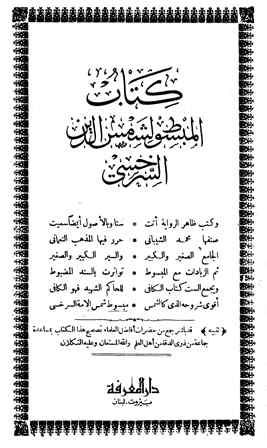 كتاب
المبسوط لشمس الدين
السرخسي
وكتب ظاهر الرواية أتت • ستا وبالأصول أيضا سميت
صنفها محمد الشيباني • حرر فيها المذهب النعماني
الجامع الصغير والكبير • والسير الكبير والصغير
ثم الزيادات مع المبسوط • تواترت بالسند المضبوط
ويجمع الست كتاب الكافي • للحاكم الشهيد فهو الكافي
أقوى شروحه الذي كالشمس • مبسوط شمس الأمة السرخسي
﴿تنبيه﴾ قد باشر جمع من حضرات أفاضل العلماء تصحيح هذا الكتاب بمساعدة
جماعة من ذوي الدقة من أهل العلم والله المستعان وعليه التكلان
دار المعرفة
بيروت - لبنان